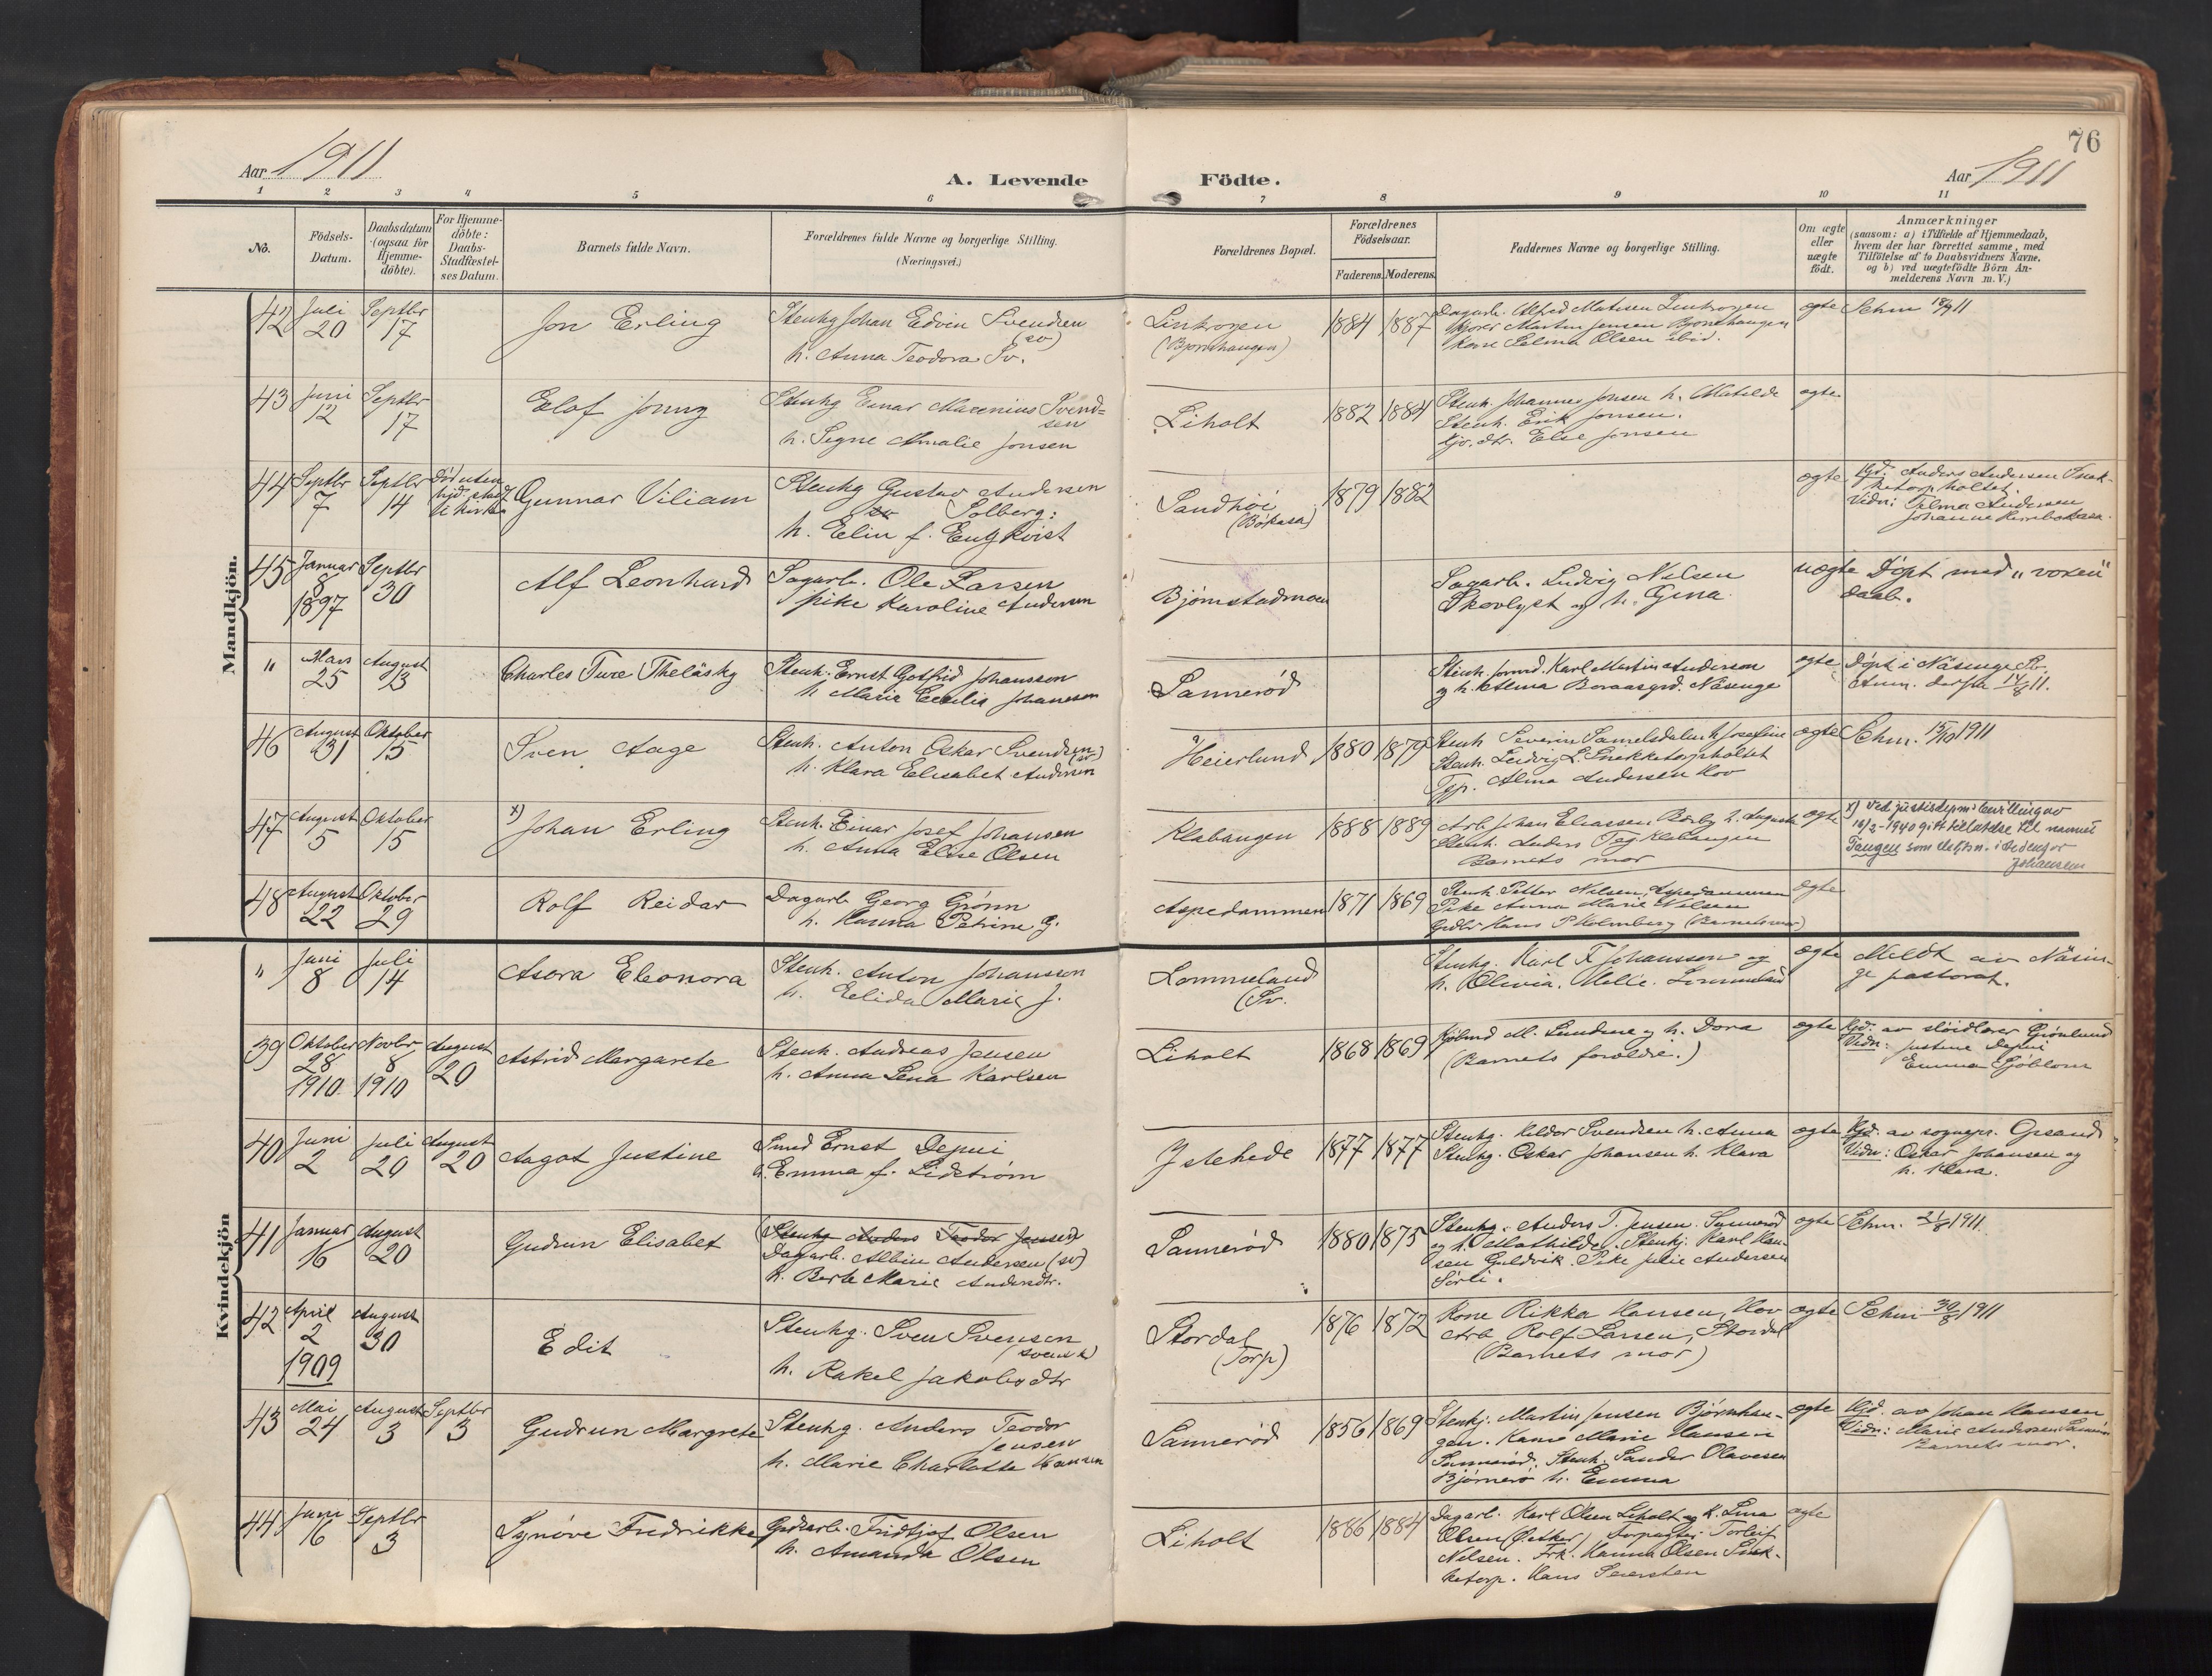 76
Aar 1911
A. Levende Födte.
Aar 1911
1 2 3 4 5 6 7 8 9 10 11
No.
Födsels-
Datum.
Daabsdatum
(ogsaa for
Hjemme-
döbte).
For Hjemme-
döbte:
Daabs-
Stadfæstel-
ses Datum.
Barnets fulde Navn.
Forældrenes fulde Navne og borgerlige Stilling.
(Næringsvei.)
Forældrenes Bopæl.
Forældrenes
Födselsaar.
Faderens. Moderens.
Faddernes Navne og borgerlige Stilling.
Om ægte
eller
uægte
födt.
Anmærkninger
(saasom: a) i Tilfælde af Hjemmedaab,
hvem der har forrettet samme, med
Tilföielse af to Daabsvidners Navne,
og b) ved uægtefödte Börn An-
melderens Navn m. V.)
Mandkjön.
42 Juli 20 Septbr 17
Jon Erling
Stenhg Johan Edvin Svendsen
(sv)
h. Anna Teodora Sv.
(Bjørnhaugen)
1884 1887
Dagarb. Alfred Matisen
Martin Jensen Bjørnhaugen
Kone Selma Olsen ibid.
ægte
Schm 18/9 11
43 Juni 12 Septbr 17
Elof Jonny
Stenhg Einar Marenius Svend-
sen
h. Signe Amalie Jonsen
Liholt
1882 1884
Stenh. Johannes Jonsen h. Matilde
Stenh. Erik Jonsen.
Else Jonsen
ægte
44 Septbr 7 Septbr 14
Død uten
hjd. stadf
i kirken
Gunnar Viliam
Stenhg Gustav Andersen
Solberg:
h. Elin f. Engkvist
Sandhøi
(Bokasa)
1879 1882
ægte
Hjd: Anders Andersen Snek-
ketorpholtet.
Vidn: Telma Andersen
Johanne
45 Januar 8 1897 Septbr 30
Alf Leonhard
Sagarb. Ole Larsen
pike Karoline Andersen
Bjørnstadmoen
Sagarb. Ludvig Nilsen
Skovlyst og h. Gina
uægte
Døpt med "voxen"
daab.
" Mars 25 August 13
Charles Ture Theläsky
Stenh. Ernst Gotfrid Johansson
h Maria Cecilia Johansson
Sannerød
Stenh. formd. Karl Martin Anderson
og h. Alma Boraasgrd. Näsenge
ægte
Døpt i Näsinge Sv.
Anm. derfra 14/8 11.
46 August 31 Oktober 15
Sven Aage
Stenh. Anton Oskar Svendsen
(sv)
h. Klara Elisabet Andersen
Heierlund
1880 1879
Stenh Severin Samelsdalen h Josefine
Stenh. Ludvig L. Snekketorpholtet
Tjp. Alma Andersen Hov
ægte
Schm. 15/10 1911
47 August 5 Oktober 15
x) Johan Erling
Stenh. Einar Josef Johansen
h. Anna Elise Olsen
Klabaugen
1888 1889
Arb Johan Eliassen Berby h. Augusta
Stenh. Anders Tag Klabaugen
Barnets mor
ægte
x) Ved justisdepm' bevilling av
16/2-1940 gitt tillatelse til navnet
Tangen som slektsn. istedenfor
Johansen
48 August 22 Oktober 29
Rolf Reidar
Dagarb Georg Grønn
h. Hanna Petrine G.
Aspedammen
1871 1869
Stenh. Petter Nilsen, Aspedammen
Pike Anna Marie Nilsen
Hans P Holmberg (Barnets mor)
ægte
Kvindekjön
" Juni 8 Juli 14
Asora Eleonora
Stenh. Anton Johansson
h. Elida Maria J.
Lommeland
(Sv.
Stenhg. Karl F Johansson og
h. Olivia. Lommeland
ægte
Meldt av Näsin-
ge pastorat.
39 Oktober 28 1910 Novbr 8 1910 August 20
Astrid Margarete
Stenh. Andreas Jensen
h. Anna Lena Karlsen
Liholt
1868 1869
Kjøbmd M. Lundene og h. Dora
(Barnets foreldre.)
ægte
Hjd. av sløidlærer Grønlund
Vidn: Justine Depui
Emma Sjøblom
40 Juni 2 Juli 20 August 20
Aagot Justine
Smed Ernst Depui
h. Emma f. Lidstrøm
Istehede
1877 1877
Stenhg. Hildor Svendsen h. Anna
Stenhg. Oskar Johansen h. Klara
ægte
Hjd. av sognepr. Opsand
Vidn: Oskar Johansen og
h. Klara.
41 Januar 16 August 20
Gudrun Elisabet
(Stenhg Anders Teodor Jensen)
Dagarb. Albin Andersen (sv)
h. Berte Marie Andersdtr.
Sannerød
1880 1875
Stenhg. Anders T. Jensen. Sannerød
og h. Mathilde. Stenhj. Karl Han-
sen Guldvik. Pike Julie Andersen
Sørli.
ægte
Schm. 21/8 1911.
42 April 2 1909 August 30
Edit
Stenhg. Sven Svenson
(svensk)
h. Rakel Jakobsdtr
Stordal
(Torp)
1876 1872
Kone Rikka Hansen, Hov
Arb Rolf Larsen, Stordal
(Barnets mor)
ægte
Schm 30/8 1911
43 Mai 24 August 3 Septbr 3
Gudrun Margrete
Stenhg. Anders Teodor
Jensen
h. Marie Charlotte Hansen
Sannerød
1856 1869
Stenhj. Martin Jensen Bjørnhau-
gen. Kone Marie Hansen
Sannerød. Stenh. Sander Olavesen
Bjørnerø h. Emma
ægte
Hjd. av Johan Hansen
Vidn: Marie Andersen Sannerød
Barnets mor.
44 Juni 16 Septbr 3
Synöve Fredrikke
Grdarb. Fridtjof Olsen
h. Amanda Olsen
Liholt
1886 1884
Dagarb. Karl Olsen Liholt og K. Lina
Olsen Torleif
Nilsen. Frk. Hanna Olsen Snek-
ketorp. Hans Seiersten
ægte